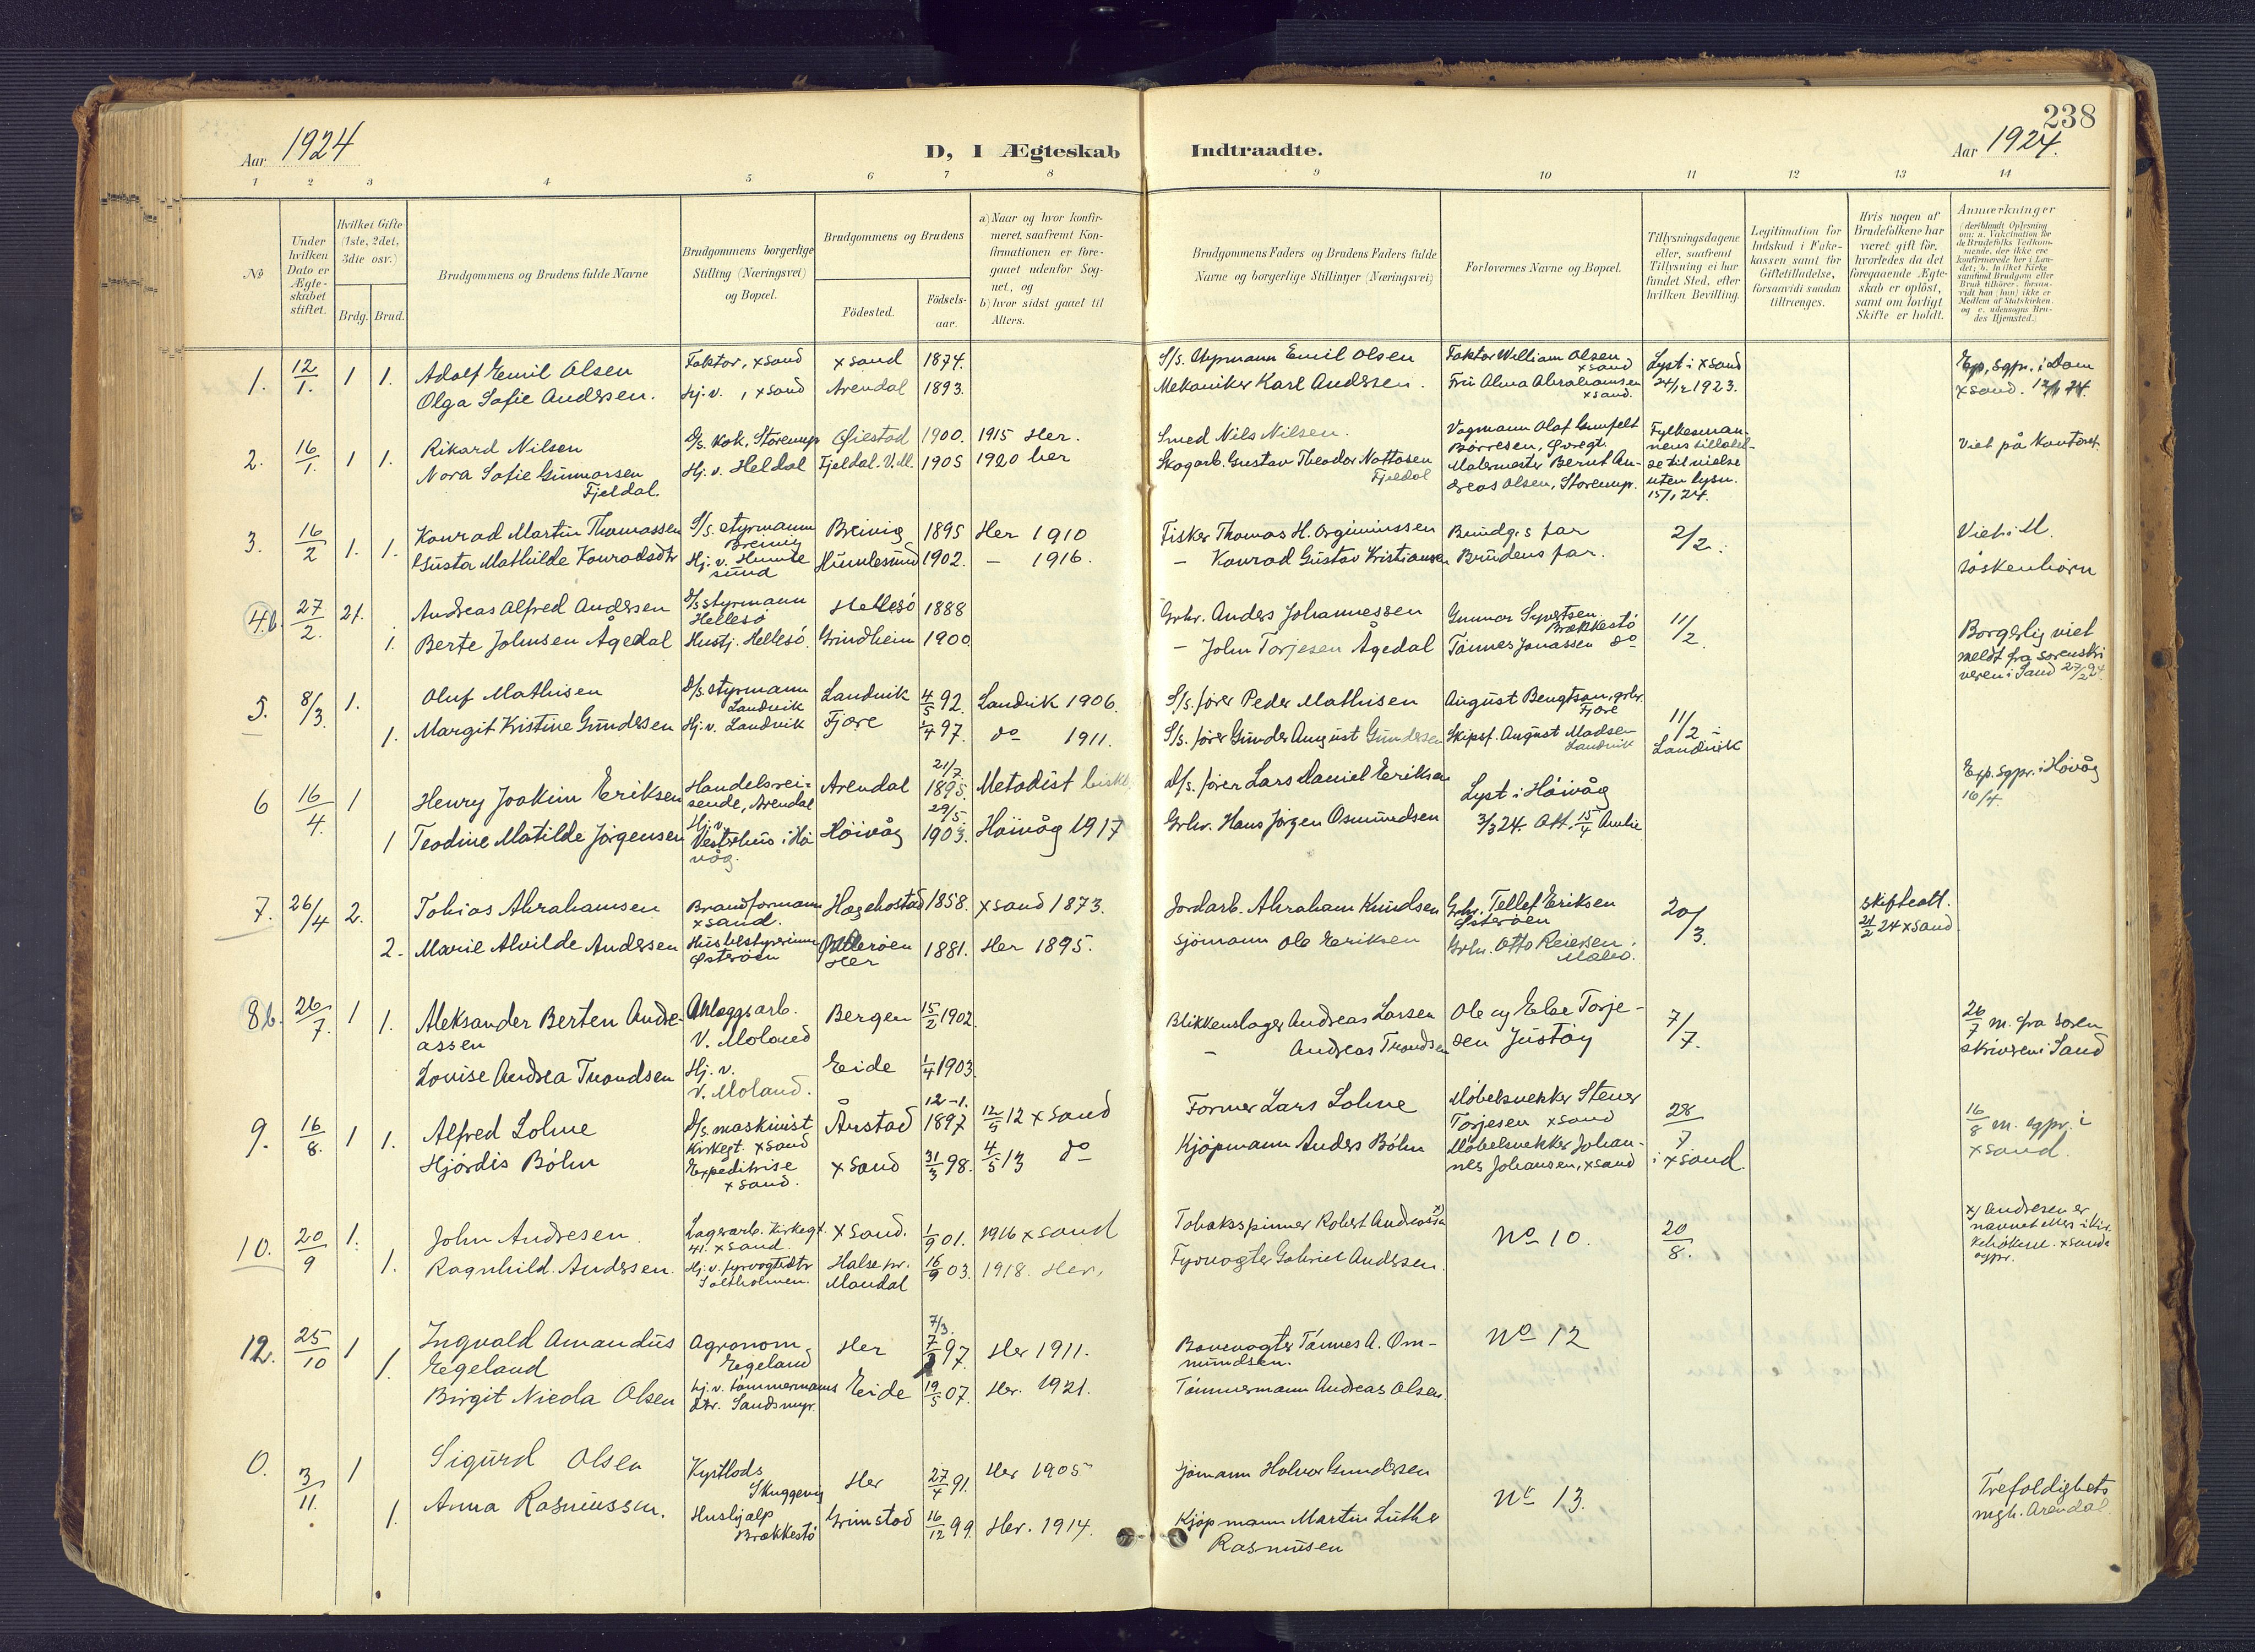 238
Aar 1924
D, I Ægteskab
Indtraadte.
Aar 1924.
1 2 3 4 5 6 7 8 9 10 11 12 13 14
No
Under hvilken Dato er Ægteskabet stiftet.
Hvilket Gifte (1ste, 2det, 3die osv.)
Brdg. Brud.
Brudgommens og Brudens fulde Navne
Brudgommens borgerlige Stilling (Næringsvei) og Bopæl.
Brudgommens og Brudens
Födested.
Födselsaar.
a) Naar og hvor konfirmeret, saafremt Konfirmationen er foregaaet udenfor Sognet, og
b) hvor sidst gaaet til Alters.
Brudgommens Faders og Brudens Faders fulde Navne og borgerlige Stillinger (Næringsvei)
Forlovernes Navne og Bopæl.
Tillysningsdagene eller, saafremt Tillysning ei har fundet Sted, efter hvilken Bevilling.
Legitimation for Indskud i Enkekassen samt for Giftetilladelse, forsaavidt saadan tiltrænges.
Hvis nogen af Brudefolkene har været gift för, hvorledes da det foregaaende Ægteskab er oplöst, samt om lovligt Skifte er holdt.
Anmærkninger
1. 12/1. 1 1. Adolf Emil Olsen Faktor, xsand xsand 1874. Emil Olsen Faktor William Olsen xsand Lyst i xsand
Olga Sofie Andersen. Hj.v., xsand Arendal 1893. Mekaniker Karl Andersen. Fru Alma Abrahamsen xsand. 24/12 1923. xsand.
2. 16/1. 1 1. Rikard Nilsen D/s. kok, Øiestad 1900. 1915 Her. Smed Nils Nilsen. Børresen, Viet på kontoret
Nora Sofie Gunnarsen Fjeldal. Hj.v. Heldal Fjeldal. V.M. 1905 1920 her Skogarb. Gustav Theodor Nottosen Fjeldal Malermester Bernt Andreas Olsen, Fylkesmannens tilladelse til vielse uten lysn. 15/1 24.
3. 16/2 1. 1. Konrad Martin Thomassen S/s. styrmann Breivig Breivig 1895 Her 1910 Fisker Thomas H. Brudg.s far 2/2. Viet i M.
Gusta Mathilde Konradsdtr Hj.v. Humlesund Humlesund 1902. – 1916. – Konrad Gustav Kristiansen Brudens far.
4b. 27/2. 2. Andreas Alfred Andersen D/s styrmann Hellesö Hellesö 1888 Grbr. Anders Johannessen Gunnar Syvertsen Brækkestö 11/2.
1. Berte Johnsen Ågedal Hustj. Hellesö. Grindheim 1900. – John Torjesen Ågedal Tönnes Jonassen do Borgerlig viet meldt fra sorenskriveren i Sand 27/2 24.
5. 8/3. 1. Oluf Mathisen D/s. styrmann Landvik Landvik 4/5 92. Landvik 1906. S/s. fører Peder Mathisen August Bengtson, grbr. Fjære
1. Margit Kristine Gundersen Hj.v. Landvik Fjære 1/4 97. do 1911. S/s. fører Gunder August Gundersen Skipsf. August Madsen Landvik 11/2 i Landvik
6 16/4. 1 Henry Joakim Eriksen Handelsreisende, Arendal Arendal 21/7. 1895. Metodist D/s. fører Lars Daniel Eriksen Lyst i Höivåg Exp. sgpr. i Höivåg 16/4.
1 Teodine Matilde Jörgensen Hj.v. Vesterhus i Hövåg. Höivåg 29/5. 1903. Höivåg 1917 Grbr. Hans Jörgen Osmundsen 3/3 24. Att. 15/4
7. 26/4 2. Tobias Abrahamsen Brandformann xsand. Hægebostad 1858. xsand 1873. Jordarb. Abraham Knudsen Grbr. Tellef Eriksen Østerøen 20/3. skifteatt. 21/2 24 xsand
2. Marie Alvilde Andersen Husbestyrerinne Østerøen Her 1881. Her 1895. Sjömann Ole Eriksen Grbr. Otto Reiersen.
8b. 26/7. 1 1. Aleksander Berten Andreassen Anlæggsarb. V. Moland Bergen 15/2 1902. Blikkenslager Andreas Larsen Ole og Else Torjesen Justöy 7/7. 26/7 m. fra sorenskriveren i Sand
Lovise Andrea Trondsen Hj.v. V. Moland. Eide 1/4 1903. – Andreas Trondsen
9. 16/8. 1 1. Alfred Lohne D/s. maskinist Kirkegt. xsand 12-1. 1897 12/5 12 xsand Former Lars Lohne Møbelsnekker Torjesen xsand 28/7 i xsand. 16/8 m. sgpr. i xsand.
Hjördis Böhn Expeditrise xsand. xsand 31/3 98. 4/5 13 do Kjöpmann Anders Böhn Møbelsnekker Johannes Johansen, xsand
10. 20/9 1. John Andresen. Lagerarb. Kirkegt. 41. xsand. xsand. 1/9 01. 1916 xsand Tobaksspinner Robert Andreassen No 10. 20/8. x) Andresen er
1. Ragnhild Andersen. Hj.v. fyrvogtdtr Saltholmen. Halse pr. Mandal 16/9 03. 1918. Her. Fyrvogter Gabriel Andersen.
12. 25/10 1 Ingvald Amandus Egeland Agronom, Egeland Her 7/3. 97. Her 1911. Banevogter Tönnes A. Ommundsen. No 12
1. Birgit Nicola Olsen Hj.v. tömmermanns dtr. Sandsmyr. Eide 19/5 07. Her. 1921. Tömmermann Andreas Olsen.
0. 3/11. 1 Sigurd Olsen Kystlods Skuggevig Her 27/4 91. Her 1905 Sjömann Halvor Gundersen No 13.
1. Anna Rasmussen. Hushjælp Brækkestö Grimstad 16/12 99. Her. 1914. Kjöpmann Martin Luther Rasmusen Trefoldighets mgh. Arendal.